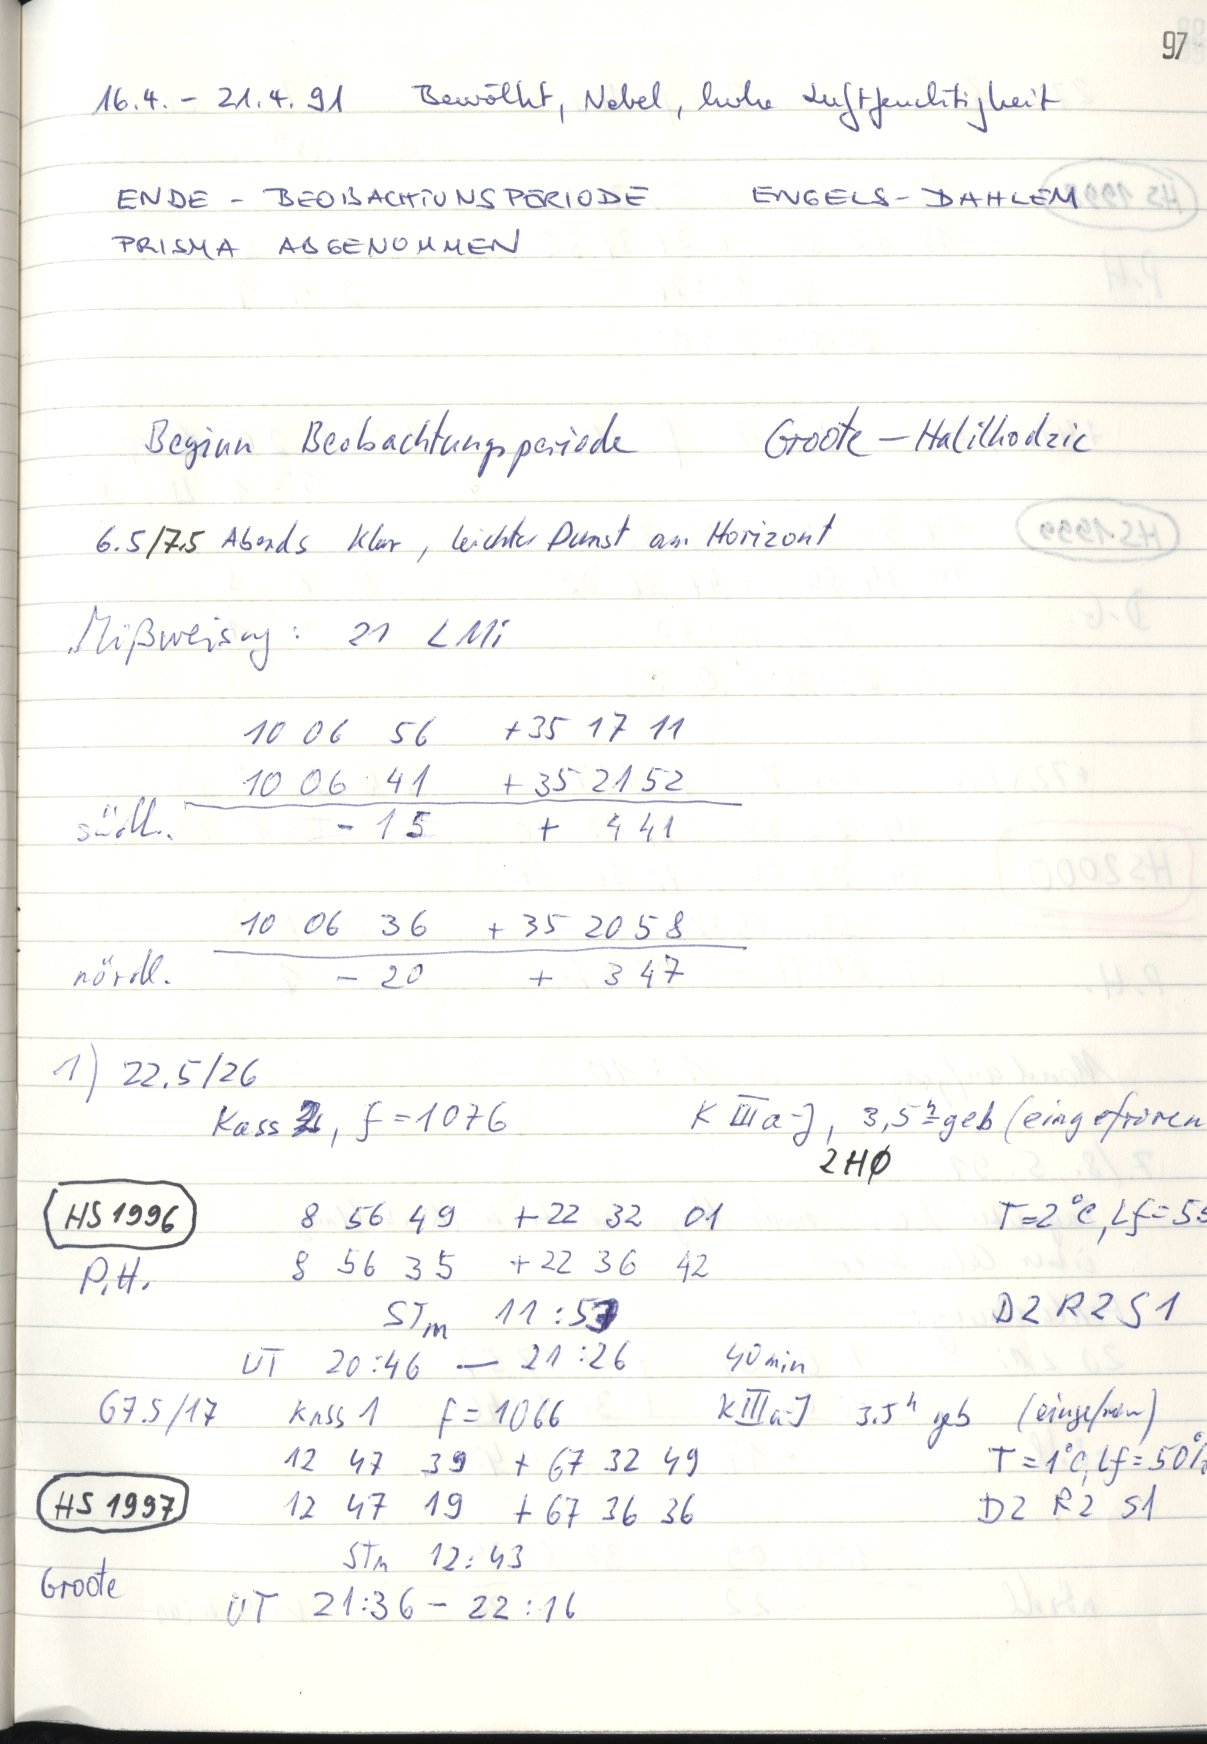 97
16.4. - 21.4.91 Bewölkt, Nebel, hohe Luftfeuchtigkeit
ENDE - BEOBACHTUNSPERIODE ENGELS - DAHLEM
PRISMA ABGENOMMEN
Beginn Beobachtungsperiode Groote - Halilhodzic
6.5/7.5 Abends klar, leichter Dunst am Horizont
Mißweisung: 21 LMi
10 06 56 +35 17 11
10 06 41 +35 21 52
südl. - 15 + 4 41
10 06 36 +35 20 58
nördl. - 20 + 3 47
1) 22.5/26
Kass 2, f = 1076 K IIIa-J, 3,5h geb (eingefroren
2HØ
HS 1996 8 56 49 +22 32 01 T=2°C, Lf=55
P.H. 8 56 35 +22 36 42
STm 11:57 D2 R2 S1
UT 20:46 — 21:26 40 min
67.5/17 Kass 1 f = 1066 KIIIa-J 3.5h geb
12 47 39 +67 32 49 T=1°C, Lf=50%
HS 1997 12 47 19 +67 36 36 D2 R2 S1
STm 12:43
Groote
UT 21:36 - 22:16